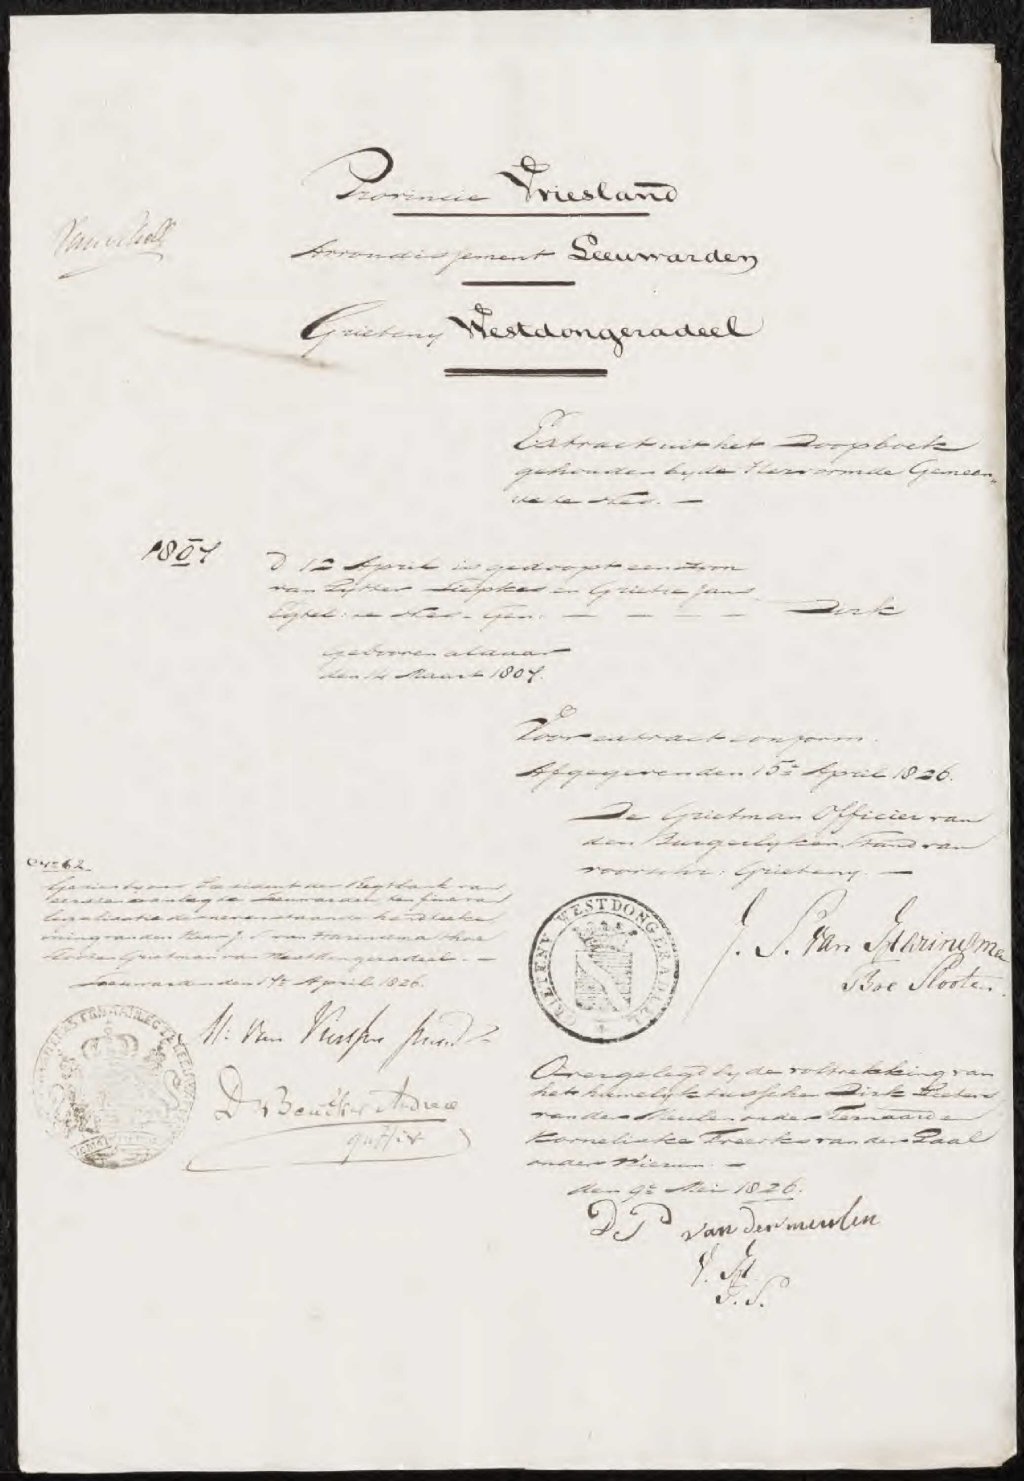 Provincie Vriesland
Arrondissement Leeuwarden
Grieteny Westdongeradeel
Extract uit het Doopboek
gehouden by de Hervormde Gemeen„
te te
1807
D 12 April is gedoopt een Zoon
van Pytter Siepkes en Grietje Jans
Dirk
gebooren aldaar
den 14 Maart 1807.
Voor extract conform.
Afgegeven den 15e April 1826.
De Grietman Officier van
den Burgerlyken Stand van
voorschr: Grieteny. —
No 62.
Gezien by ons President der Regtbank van
eersten aanleg te Leeuwarden ten fine van
legalisatie der nevenstaande handteeke
ning van den Heer J. S. van Harinxma thoe
Slooten Grietman van Westdongeradeel. —
Leeuwarden den 17e April 1826.
GRIETENY WESTDONGERADEEL
J. S. van Harinxma
thoe Slooten.
Overgelegd by de voltrekking van
het huwelyk tusschen Dirk Pieters
van der Meulen onder Ternaard en
Korneliske Freerks van der Zaal
onder Wierum. —
den 9e Mei 1826.
D P van der meulen
J. H.
T. S.